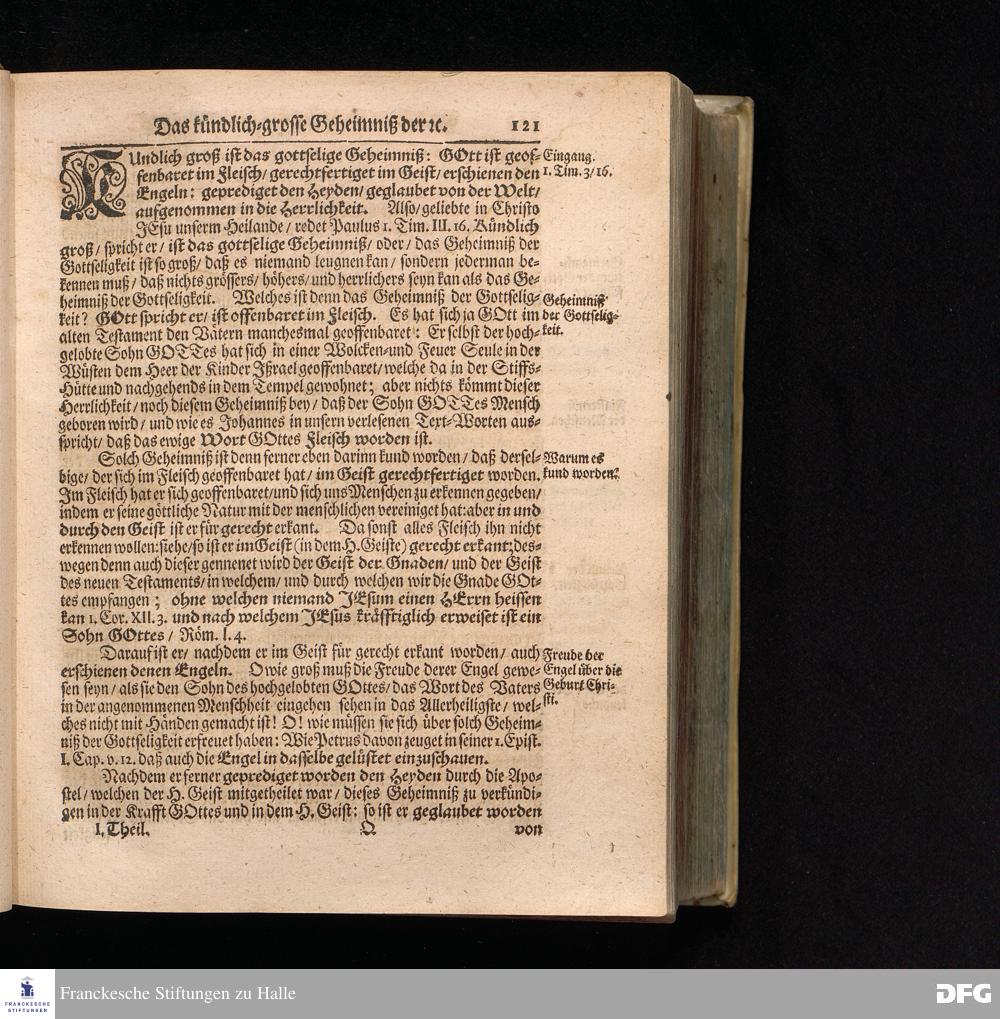 Das kündlich-grosse Geheimniß der ꝛc. 121
KUndlich groß ist das gottselige Geheimniß: GOtt ist geof-
fenbaret im Fleisch/ gerechtfertiget im Geist/ erschienen den
Engeln: geprediget den Heyden/ geglaubet von der Welt/
aufgenommen in die Herrlichkeit. Also/ geliebte in Christo
JEsu unserm Heilande/ redet Paulus 1. Tim. III. 16. Kündlich
groß/ spricht er/ ist das gottselige Geheimniß/ oder/ das Geheimniß der
Gottseligkeit ist so groß/ daß es niemand leugnen kan/ sondern jederman be-
kennen muß/ daß nichts grössers/ höhers/ und herrlichers seyn kan als das Ge-
heimniß der Gottseligkeit. Welches ist denn das Geheimniß der Gottselig-
keit? GOtt spricht er/ ist offenbaret im Fleisch. Es hat sich ja GOtt im
alten Testament den Vätern manchesmal geoffenbaret: Er selbst der hoch-
gelobte Sohn GOTTes hat sich in einer Wolcken-und Feuer Seule in der
Wüsten dem Heer der Kinder Ißrael geoffenbaret/ welche da in der Stiffs-
Hütte und nachgehends in dem Tempel gewohnet; aber nichts kömmt dieser
Herrlichkeit/ noch diesem Geheimniß bey/ daß der Sohn GOTTes Mensch
geboren wird/ und wie es Johannes in unsern verlesenen Text-Worten aus-
spricht/ daß das ewige Wort GOttes Fleisch worden ist.
Solch Geheimniß ist denn ferner eben darinn kund worden/ daß dersel-
bige/ der sich im Fleisch geoffenbaret hat/ im Geist gerechtfertiget worden.
Im Fleisch hat er sich geoffenbaret/und sich uns Menschen zu erkennen gegeben/
indem er seine göttliche Natur mit der menschlichen vereiniget hat: aber in und
durch den Geist ist er für gerecht erkant. Da sonst alles Fleisch ihn nicht
erkennen wollen: siehe/ so ist er im Geist (in dem H. Geiste) gerecht erkant; des-
wegen denn auch dieser gennenet wird der Geist der Gnaden/ und der Geist
des neuen Testaments/ in welchem/ und durch welchen wir die Gnade GOt-
tes empfangen; ohne welchen niemand JEsum einen HErrn heissen
kan 1. Cor. XII. 3. und nach welchem JEsus kräfftiglich erweiset ist ein
Sohn GOttes/ Röm. I. 4.
Darauf ist er/ nachdem er im Geist für gerecht erkant worden/ auch
erschienen denen Engeln. O wie groß muß die Freude derer Engel gewe-
sen seyn/ als sie den Sohn des hochgelobten GOttes/ das Wort des Vaters
in der angenommenen Menschheit eingehen sehen in das Allerheiligste/ wel-
ches nicht mit Händen gemacht ist! O! wie müssen sie sich über solch Geheim-
niß der Gottseligkeit erfreuet haben: Wie Petrus davon zeuget in seiner 1. Epist.
I. Cap. v. 12. daß auch die Engel in dasselbe gelüstet einzuschauen.
Nachdem er ferner geprediget worden den Heyden durch die Apo-
stel/ welchen der H. Geist mitgetheilet war/ dieses Geheimniß zu verkündi-
gen in der Krafft GOttes und in dem H. Geist: so ist er geglaubet worden
I. Theil. Q von
Eingang.
1. Tim. 3/16.
Geheimniß
der Gottselig-
keit.
Warum es
kund worden?
Freude der
Engel über die
Geburt Chri-
sti.
FRANCKESCHE
STIFTUNGEN
Franckesche Stiftungen zu Halle
DFG